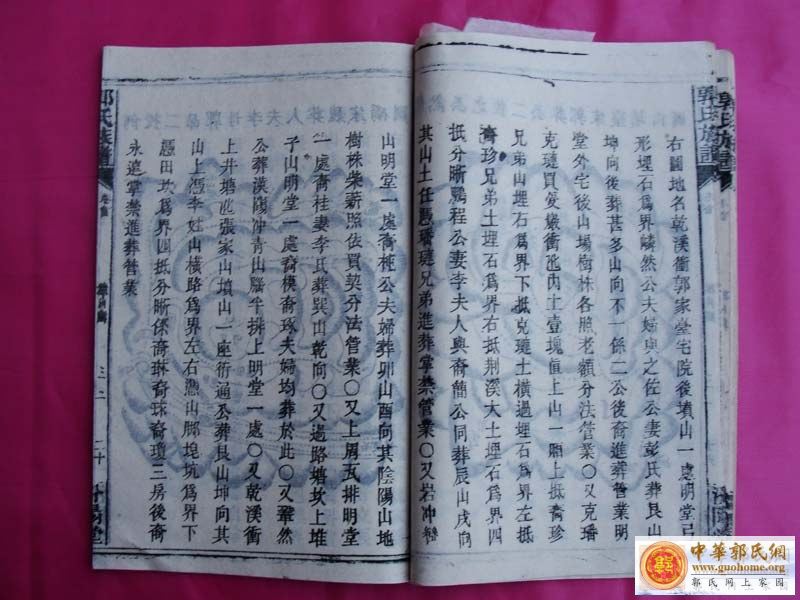 右圖地名乾溪衝郭家臺宅院後墳山一處明堂弓
形埋石爲界嶙然公夫婦與之佐公妻彭氏葬艮山
坤向後葬甚多山向不一係二公後裔進葬管業明
堂外宅後山場樹林各照老額分法管業〇又克璠
克璉買受嚴衝山內土壹塊直上山一頂上抵裔珍
兄弟山土埋石爲界下抵克璉土橫過埋石爲界左抵
裔珍兄弟土埋石爲界右抵荆溪大土埋石爲界四
抵分晰鵬程公妻李夫人與裔簡公同葬辰山戌向
其山土任憑璠璉兄弟進葬掌禁管業〇又岩冲
山明堂一處裔公夫婦葬卯山酉向其陰陽山地
樹株柴薪照依買契分法管業〇又上周瓦排明堂
一處裔桂妻李氏葬巽山乾向〇又過路塘坎上堆
子山明堂一處裔模裔琢夫婦均葬於此〇又鞏然
公葬漢陽冲青山腦半排上明堂一處〇又乾溪衝
上井塘張家山墳山一座術通公葬艮山坤向其
山上憑李姓山橫路爲界左右憑山脚埄坑爲界下
憑田坎爲界四抵分晰係裔琳裔珠裔瓊三房後裔
永遠掌禁進葬管業
郭氏族譜
卷首
郭氏族譜
中華郭氏網
www.guohome.org
郭氏网上家园